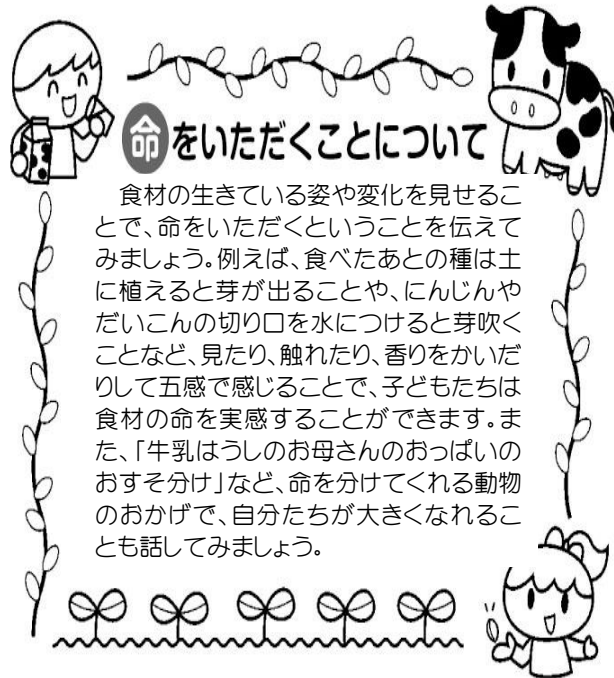 命をいただくことについて
　食材の生きている姿や変化を見せるこ
とで、命をいただくということを伝えて
みましょう。例えば、食べたあとの種は土
に植えると芽が出ることや、にんじんや
だいこんの切り口を水につけると芽吹く
ことなど、見たり、触れたり、香りをかいだ
りして五感で感じることで、子どもたちは
食材の命を実感することができます。ま
た、「牛乳はうしのお母さんのおっぱいの
おすそ分け」など、命を分けてくれる動物
のおかげで、自分たちが大きくなれるこ
とも話してみましょう。